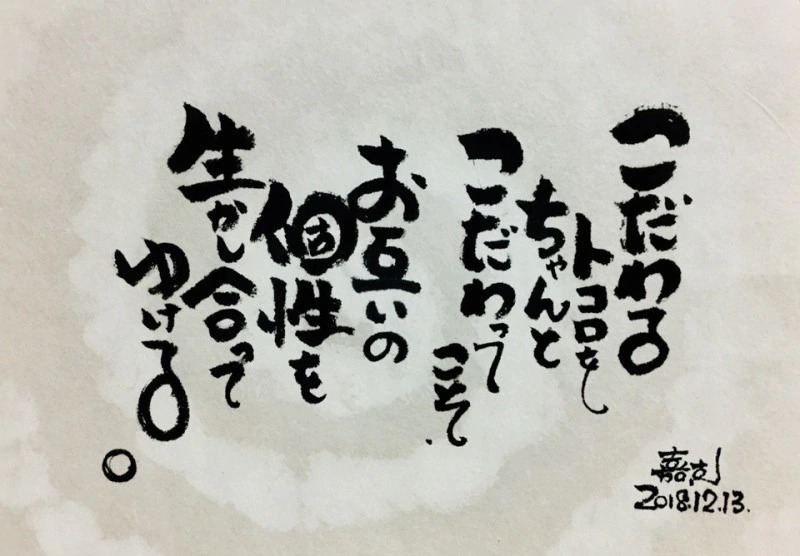 こだわる
トコロを
ちゃんと
こだわって
こそ、
お互いの
個性を
生かし合って
ゆける。
2018.12.13.